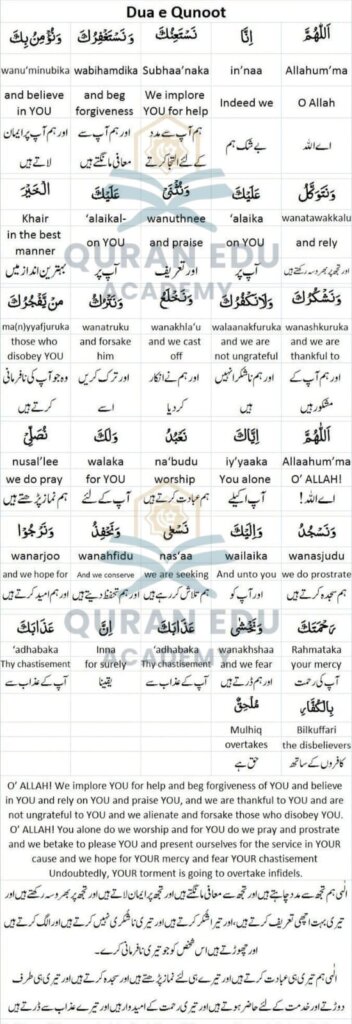 Dua e Qunoot
اَللّٰهُمَّ اِنَّا نَسْتَعِيْنُكَ وَنَسْتَغْفِرُكَ وَنُؤْمِنُ بِكَ
Allahum'ma in'naa Subhaa'naka wabihamdika wanu'minubika
O Allah Indeed we We implore YOU for help and beg forgiveness and believe in YOU
اے اللہ بے شک ہم ہم آپ سے مدد کے لئے التجا کرتے اور ہم آپ سے معافی مانگتے ہیں اور ہم آپ پر ایمان لاتے ہیں
وَنَتَوَكَّلُ عَلَيْكَ وَنُثْنِيْ عَلَيْكَ الْخَيْرَ
wanatawakkalu 'alaika wanuthnee 'alaikal- Khair
and rely on YOU and praise on YOU in the best manner
اور تجھ پر بھروسہ رکھتے ہیں آپ پر اور تعریف آپ پر بہترین انداز میں
QURAN EDU
ACADEMY
وَنَشْكُرُكَ وَلَانَكْفُرُكَ وَنَخْلَعُ وَنَتْرُكُ مَنْ يَّفْجُرُكَ
wanashkuruka walaanakfuruka wanakhla'u wanatruku ma(n)yyafjuruka
and we are thankful to and we are not ungrateful and we cast off and forsake him those who disobey YOU
اور ہم آپ کے مشکور ہیں اور ہم ناشکرا نہیں ہیں اور ہم نے انکار کردیا اور ترک کریں اسے وہ جو آپ کی نافرمانی کرتے ہیں
اَللّٰهُمَّ اِيَّاكَ نَعْبُدُ وَلَكَ نُصَلِّيْ
Allaahum'ma iy'yaaka na'budu walaka nusal'lee
O' ALLAH! You alone worship for YOU we do pray
اے اللہ! آپ اکیلے ہم عبادت کرتے ہیں آپ کے لئے ہم نماز پڑھتے ہیں
وَنَسْجُدُ وَاِلَيْكَ نَسْعٰى وَنَحْفِدُ وَنَرْجُوْا
wanasjudu wailaika nas'aa wanahfidu wanarjoo
we do prostrate And unto you we are seeking And we conserve and we hope for
ہم سجدہ کرتے ہیں اور آپ کو ہم تلاش کر رہے ہیں اور ہم تحفظ دیتے ہیں اور ہم امید کرتے ہیں
QURAN EDU
ACADEMY
رَحْمَتَكَ وَنَخْشٰى عَذَابَكَ اِنَّ عَذَابَكَ
Rahmataka wanakhshaa 'adhabaka Inna 'adhabaka
your mercy and we fear Thy chastisement for surely Thy chastisement
آپ کی رحمت اور ہم ڈرتے ہیں آپ کے عذاب سے یقینا آپ کے عذاب سے
بِالْكُفَّارِ مُلْحِقٌ
Bilkuffari Mulhiq
the disbelievers overtakes
کافروں کے ساتھ حق ہے
O' ALLAH! We implore YOU for help and beg forgiveness of YOU and believe
in YOU and rely on YOU and praise YOU, and we are thankful to YOU and are
not ungrateful to YOU and we alienate and forsake those who disobey YOU.
O' ALLAH! You alone do we worship and for YOU do we pray and prostrate
and we betake to please YOU and present ourselves for the service in YOUR
cause and we hope for YOUR mercy and fear YOUR chastisement
Undoubtedly, YOUR torment is going to overtake infidels.
الٰہی ہم تجھ سے مدد چاہتے ہیں اور تجھ سے معافی مانگتے ہیں اور تجھ پر ایمان لاتے ہیں اور تجھ پر بھروسہ رکھتے ہیں اور
تیری بہت اچھی تعریف کرتے ہیں، اور تیرا شکر کرتے ہیں اور تیری ناشکری نہیں کرتے ہیں اور الگ کرتے ہیں
اور چھوڑتے ہیں اس شخص کو جو تیری نافرمانی کرے۔
الٰہی ہم تیری ہی عبادت کرتے ہیں اور تیرے ہی لئے نماز پڑھتے ہیں اور سجدہ کرتے ہیں اور تیری ہی طرف
دوڑتے اور خدمت کے لئے حاضر ہوتے ہیں اور تیری رحمت کے امیدوار ہیں اور تیرے عذاب سے ڈرتے ہیں